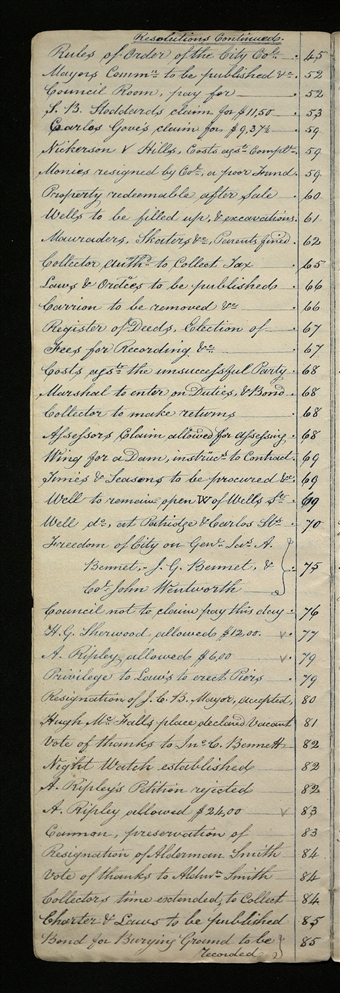 Resolutions Continued.
Rules of Order of the City Col. 45
Mayors Commn. to be published &c. 52
Council Room, pay for 52
S. B. Stoddard's claim for $11,50 53
Carlos Gove's claim for $9,37½ 59
Nickerson & Hills, Costs agst. Complt. 59
Monies resigned by Col. a poor Fund 59
Property redeemable after Sale 60
Wells to be filled up, & excavations 61
Marauders, Skaters &c, Parents fined 62
Collector, auth. to Collect Tax 65
Laws & Ordces to be published 66
Carrion to be removed &c 66
Register of Deeds, Election of 67
Fees for Recording &c 67
Costs agst. the unsuccessful Party 68
Marshal to enter on Duties, & Bond 68
Collector to make returns 68
Assessors Claim allowed for assessing 68
Wing for a Dam, instruct. to Contract 69
Times & Seasons to be procured &c 69
Well to remain open W of Wells St. 69
Well do, at Partridge & Carlos Sts. 70
Freedom of City on Genl. Jas. A.
Bennet, J. G. Bennet, &
Col. John Wentworth 75
Council not to claim pay this day 76
H. G. Sherwood, allowed $12.00 77
A. Ripley allowed $6,00 79
Privilege to Laws to erect Piers 79
Resignation of J. C. B. Mayor, accepted, 80
Hugh McFalls place declared Vacant 81
Vote of thanks to Jno. C. Bennett 82
Night Watch established 82
A. Ripley's Petition rejected 82
A. Ripley allowed $24,00 83
Cannon, preservation of 83
Resignation of Alderman Smith 84
Vote of thanks to Aldmn. Smith 84
Collectors time extended, to Collect 84
Charter & Laws to be published 85
Bond for Burying Ground to be
recorded 85